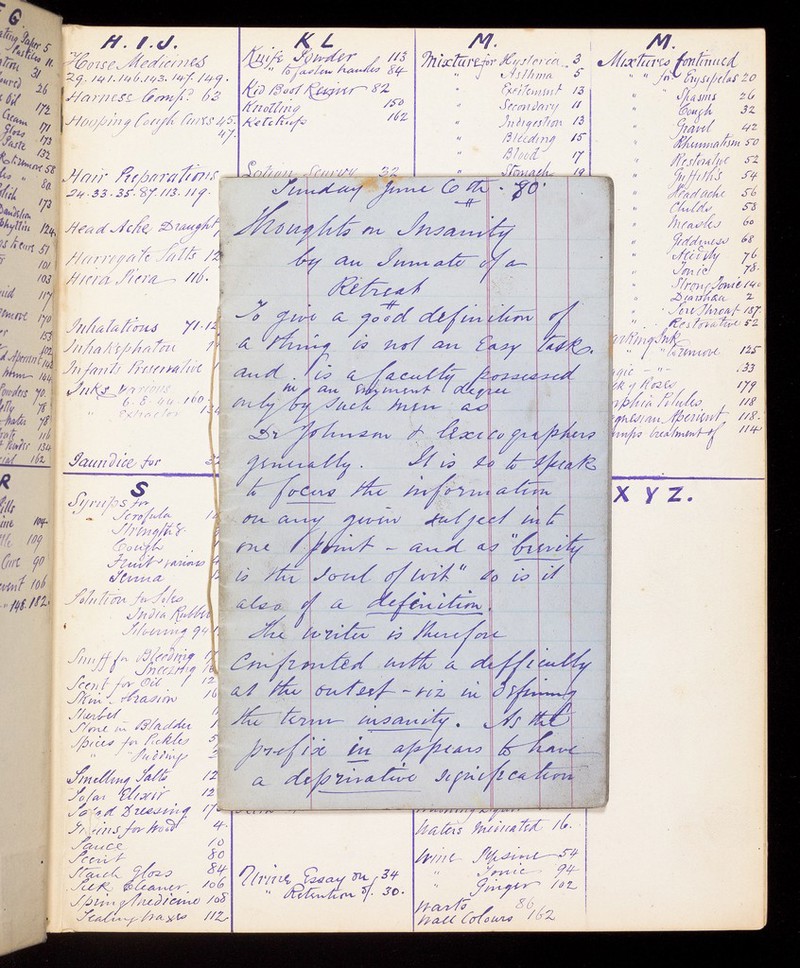 H. I. J.
Horse Medicines
29. 141. 146. 143. 147. 149.
Harness Comp. 63
Hooping Cough Cures 45.
47.
Hair Preparations
24. 33. 35. 87. 113. 119.
Head Ache Draught
Harrigate Salts 12
Hiera Picra 116.
Inhalations 71.12
Infants Preservative
Inks various
6. 8. 44. 160.
" Extractor
Jaundice for
K L
Knife Powder 113
" to fasten handles 84
Kid Boot Reviver 82
Knotting 150
Ketchup 162
Lotion Scurvy 32
M.
Mixture for Hysteria 3
" Asthma 5
" Excitement 13
" Secondary 11
" Indigestion 13
" Bleeding 15
" Blood 17
" Stomach 19
M.
Mixtures continued
" for Erysipelas 20
" Spasms 26
" Cough 32
" Gravel 42
" Rheumatism 50
" Restorative 52
" Griffith's 54
" Headache 56
" Childs 58
" Measles 60
" Giddeness 68
" Acidity 76
" Tonic 78.
" Strong Tonic 140
" Diarrhœa 2
" Sore Throat 137.
" Restorative 52
arking Ink
" " remove 125
.33
k of Roses 179
rphia Pilules 118
gnesian Aperient 118.
umps treatment of 114
Sunday June 6th. 80.
Thoughts on Insanity
by an Inmate of a
Retreat
To give a good definition of
a thing is not an easy task.
and is a faculty possessed
in an eminent degree
only by such men as
Dr Johnson & lexicographers
generally. It is so to speak
to focus the information
on any given subject into
one point - and as "brevity
is the soul of wit" so is it
also of a definition.
The writer is therefore
confronted with a difficulty
at the outset - viz in defining
the term insanity. As the
prefix in appears to have
a deprivative signification
S
Syrups for
Scrofula
Strength &
Cough
Fruit various
Senna
Solution for Silks
India Rubber
Silvering 94
Snuff for Bleeding
Sneezing
Scent for Oil 12
Skin Abrasion 16
Sherbet
Stone in Bladder
Spices for Pickles 5
" " Puddings
Smelling Salts 12
Solar Elixir 12
Salad Dressing 17
Stains for Wood 4.
Sauce 10
Scent 80
Starch Gloss 84
Silk Cleaner 106
Spring Medicine 108
Sealing Waxes 112
Urine Essay on 34
" Retention of. 30.
Waters Medicated 16.
Wine Pepsine 54
" Tonic 94
" Ginger 102
Warts 86
Wall Colours 162
X Y Z.